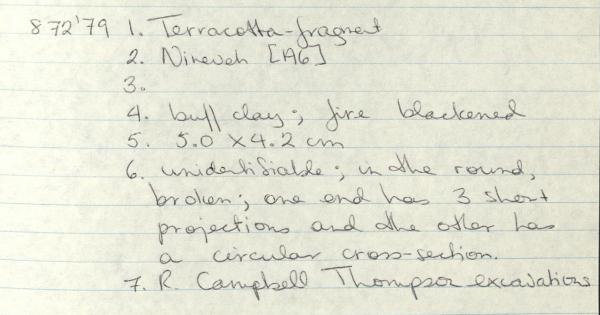 872'79 1. Terracotta-fragment
2. Nineveh [A6]
3.
4. buff clay; fire blackened
5. 5.0 x 4.2 cm
6. unidentifiable; in the round,
broken; one end has 3 short
projections and the other has
a circular cross-section.
7. R. Campbell Thompson excavations